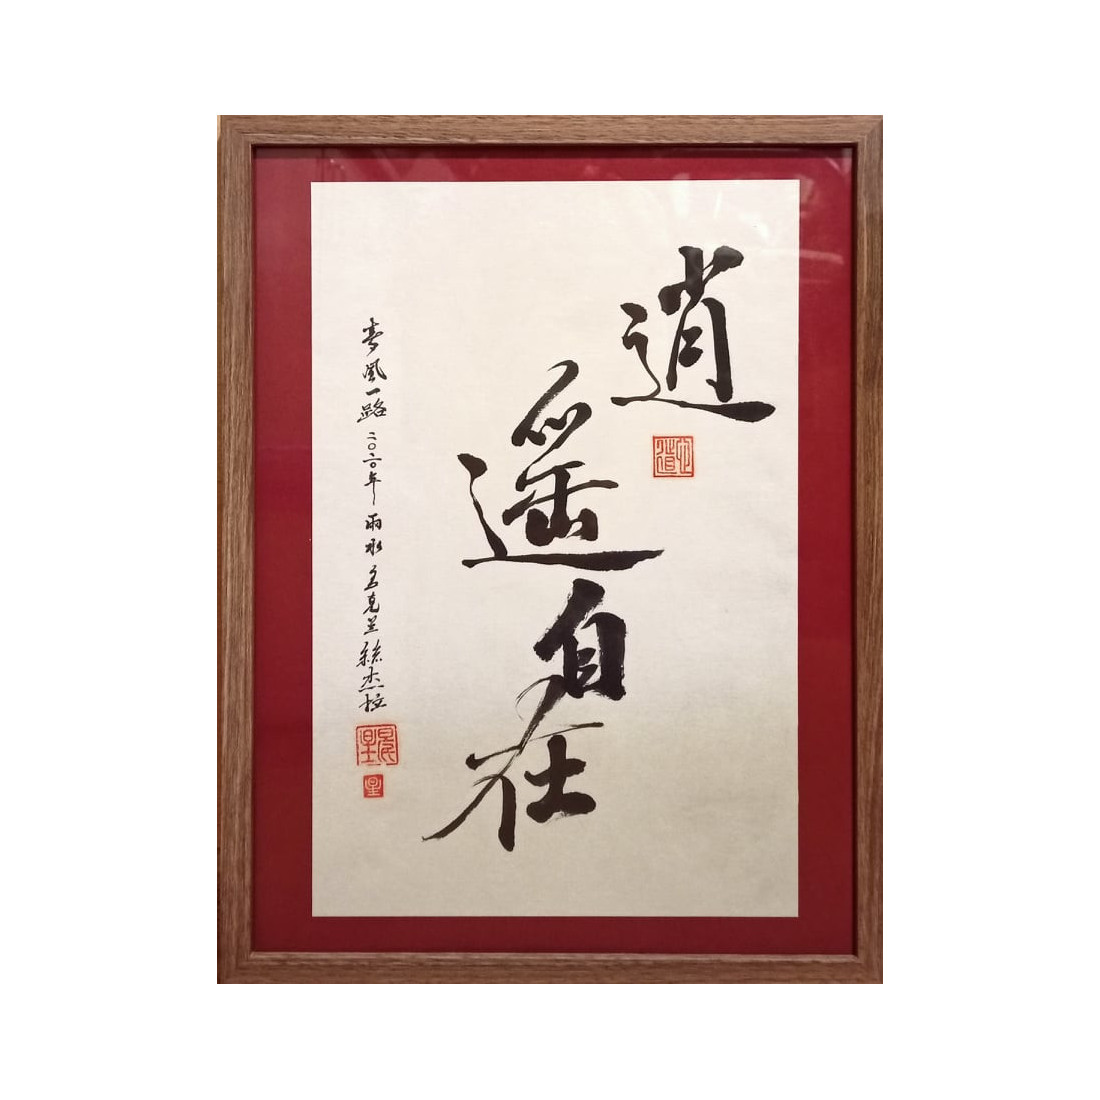 逍遥自在
春風一路 二〇二〇年 雨水 烏克兰 赫杰拉